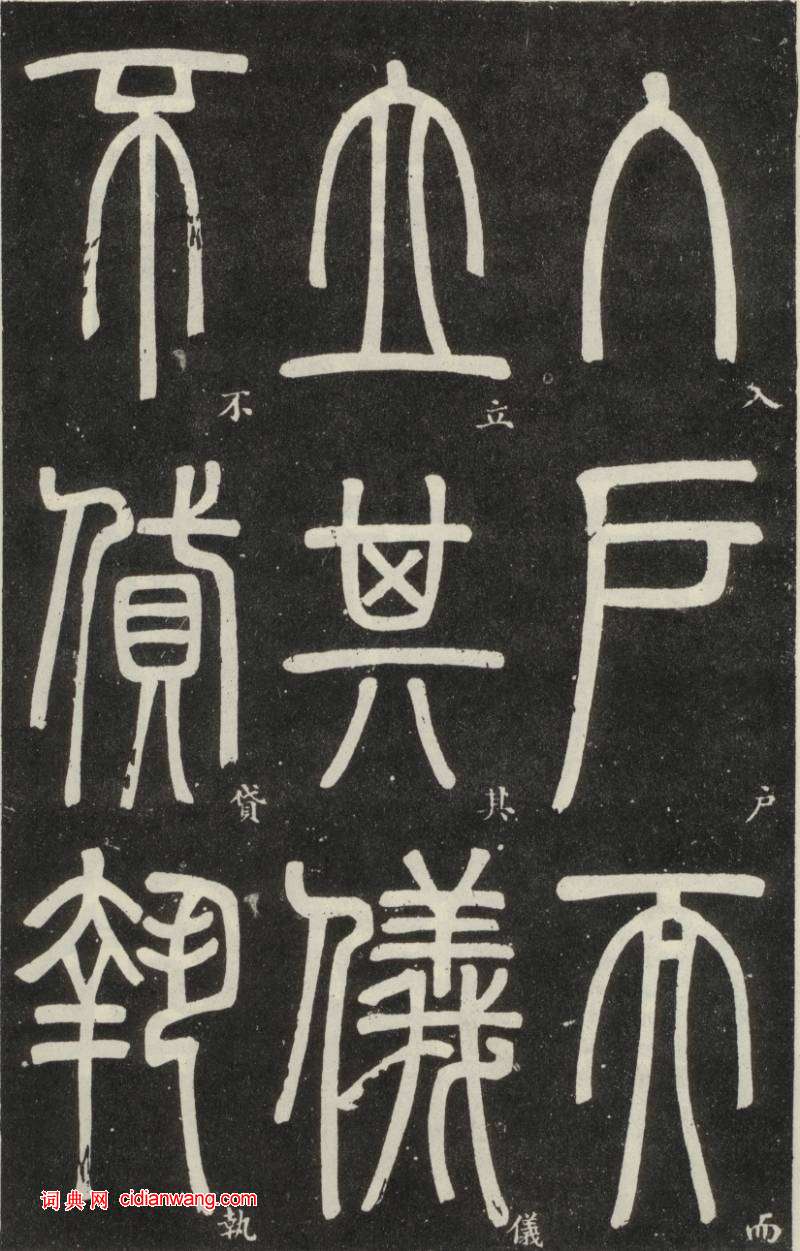 入户而
立其儀
不貸執
入
户
而
立
其
儀
不
貸
執
词典网 cidianwang.com